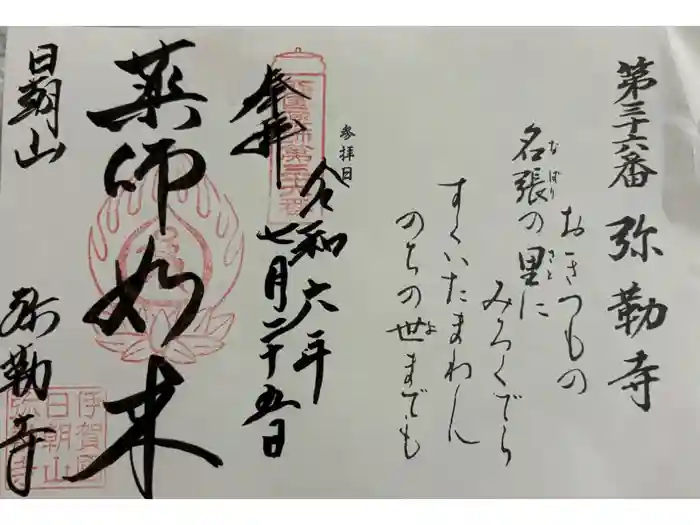 第三十六番 弥勒寺
おきつもの
名張の里に
なばり
さと
みろくでら
すくいたまわん
のちの世までも
よ
参拝日
令和六年
七月二十五日
奉拝
薬師如来
日朝山
弥勒寺
伊賀國
日朝山
弥勒寺